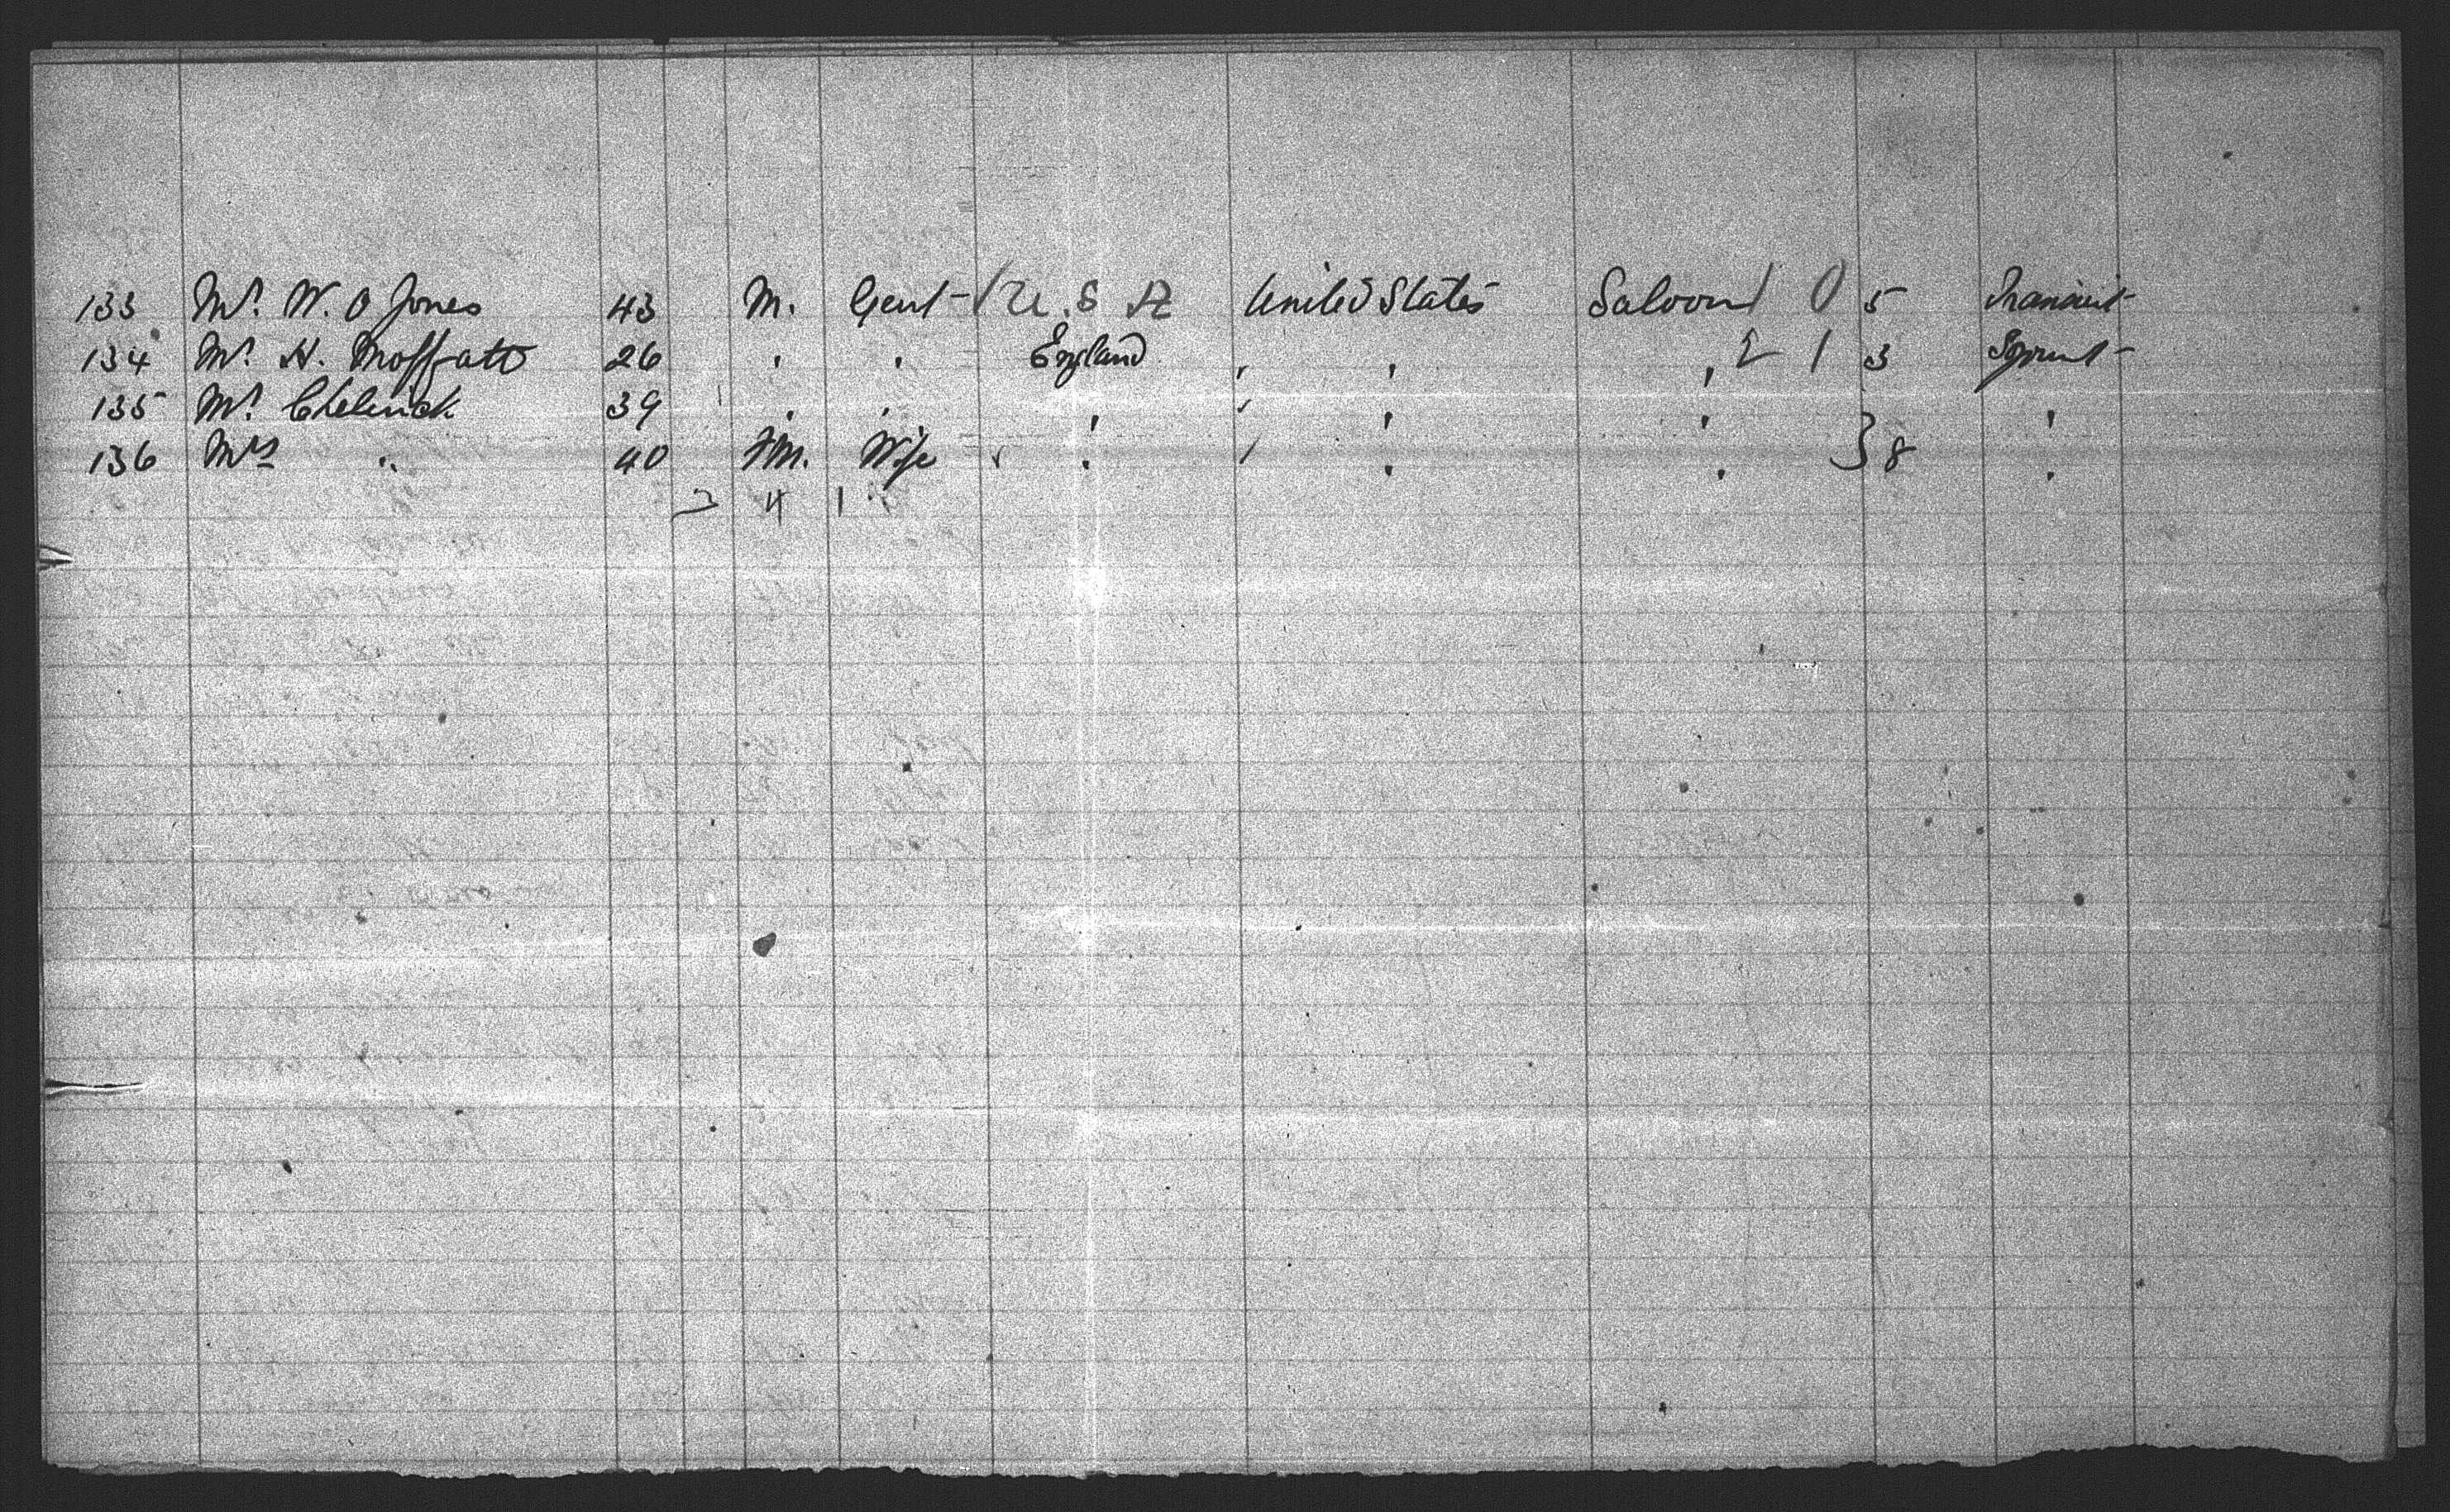 133 Mr. W. O Jones 43 M. Gent - U.S A United States Saloon 1 0 5 Transit
134 Mr. H. Moffatt 26 " " England " " " E 1 3 Sojourn
135 Mr. 39 " " " " " " "
136 Mrs " 40 FM. Wife " " " " } 8 "
4 1